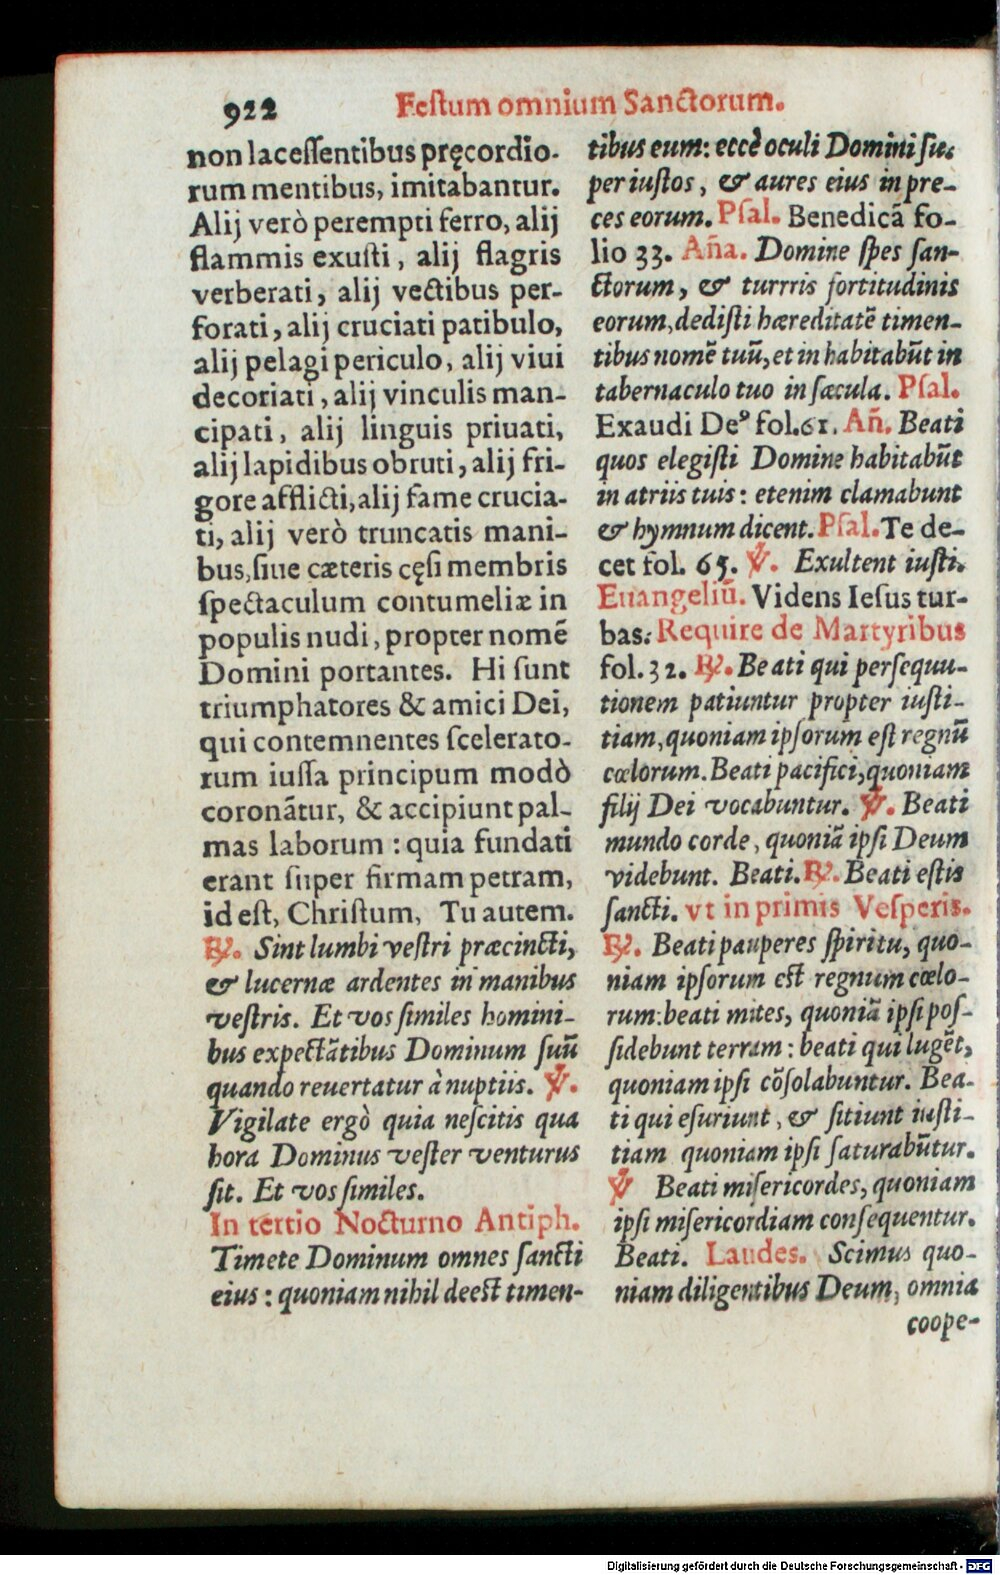 922 Festum omnium Sanctorum.
non lacessentibus pręcordio-
rum mentibus, imitabantur.
Alij verò perempti ferro, alij
flammis exusti, alij flagris
verberati, alij vectibus per-
forati, alij cruciati patibulo,
alij pelagi periculo, alij viui
decoriati, alij vinculis man-
cipati, alij linguis priuati,
alij lapidibus obruti, alij fri-
gore afflicti, alij fame crucia-
ti, alij verò truncatis mani-
bus, siue cæteris cęsi membris
spectaculum contumeliæ in
populis nudi, propter nomē
Domini portantes. Hi sunt
triumphatores & amici Dei,
qui contemnentes scelerato-
rum iussa principum modò
coronātur, & accipiunt pal-
mas laborum : quia fundati
erant super firmam petram,
id est, Christum, Tu autem.
℟. Sint lumbi vestri præcincti,
& lucernæ ardentes in manibus
vestris. Et vos similes homini-
bus expectātibus Dominum suū
quando reuertatur à nuptiis. ℣.
Vigilate ergò quia nescitis qua
hora Dominus vester venturus
sit. Et vos similes.
In tertio Nocturno Antiph.
Timete Dominum omnes sancti
eius : quoniam nihil deest timen-
tibus eum: eccè oculi Domini su-
per iustos, & aures eius in pre-
ces eorum. Psal. Benedicā fo-
lio 33. Aña. Domine spes san-
ctorum, & turrris fortitudinis
eorum, dedisti hæreditatē timen-
tibus nomē tuū, et in habitabūt in
tabernaculo tuo in sæcula. Psal.
Exaudi Deꝰ fol.61. Añ. Beati
quos elegisti Domine habitabūt
in atriis tuis : etenim clamabunt
& hymnum dicent. Psal. Te de-
cet fol. 65. ℣. Exultent iusti.
Euangeliū. Videns Iesus tur-
bas. Require de Martyribus
fol.32. ℟. Beati qui persequu-
tionem patiuntur propter iusti-
tiam, quoniam ipsorum est regnū
cœlorum. Beati pacifici, quoniam
filij Dei vocabuntur. ℣. Beati
mundo corde, quoniā ipsi Deum
videbunt. Beati. ℟. Beati estis
sancti. vt in primis Vesperis.
℟. Beati pauperes spiritu, quo-
niam ipsorum est regnum cœlo-
rum: beati mites, quoniā ipsi pos-
sidebunt terram : beati qui lugēt,
quoniam ipsi cōsolabuntur. Bea-
ti qui esuriunt, & sitiunt iusti-
tiam quoniam ipsi saturabūtur.
℣ Beati misericordes, quoniam
ipsi misericordiam consequentur.
Beati. Laudes. Scimus quo-
niam diligentibus Deum, omnia
coope-
Digitalisierung gefördert durch die Deutsche Forschungsgemeinschaft - DFG